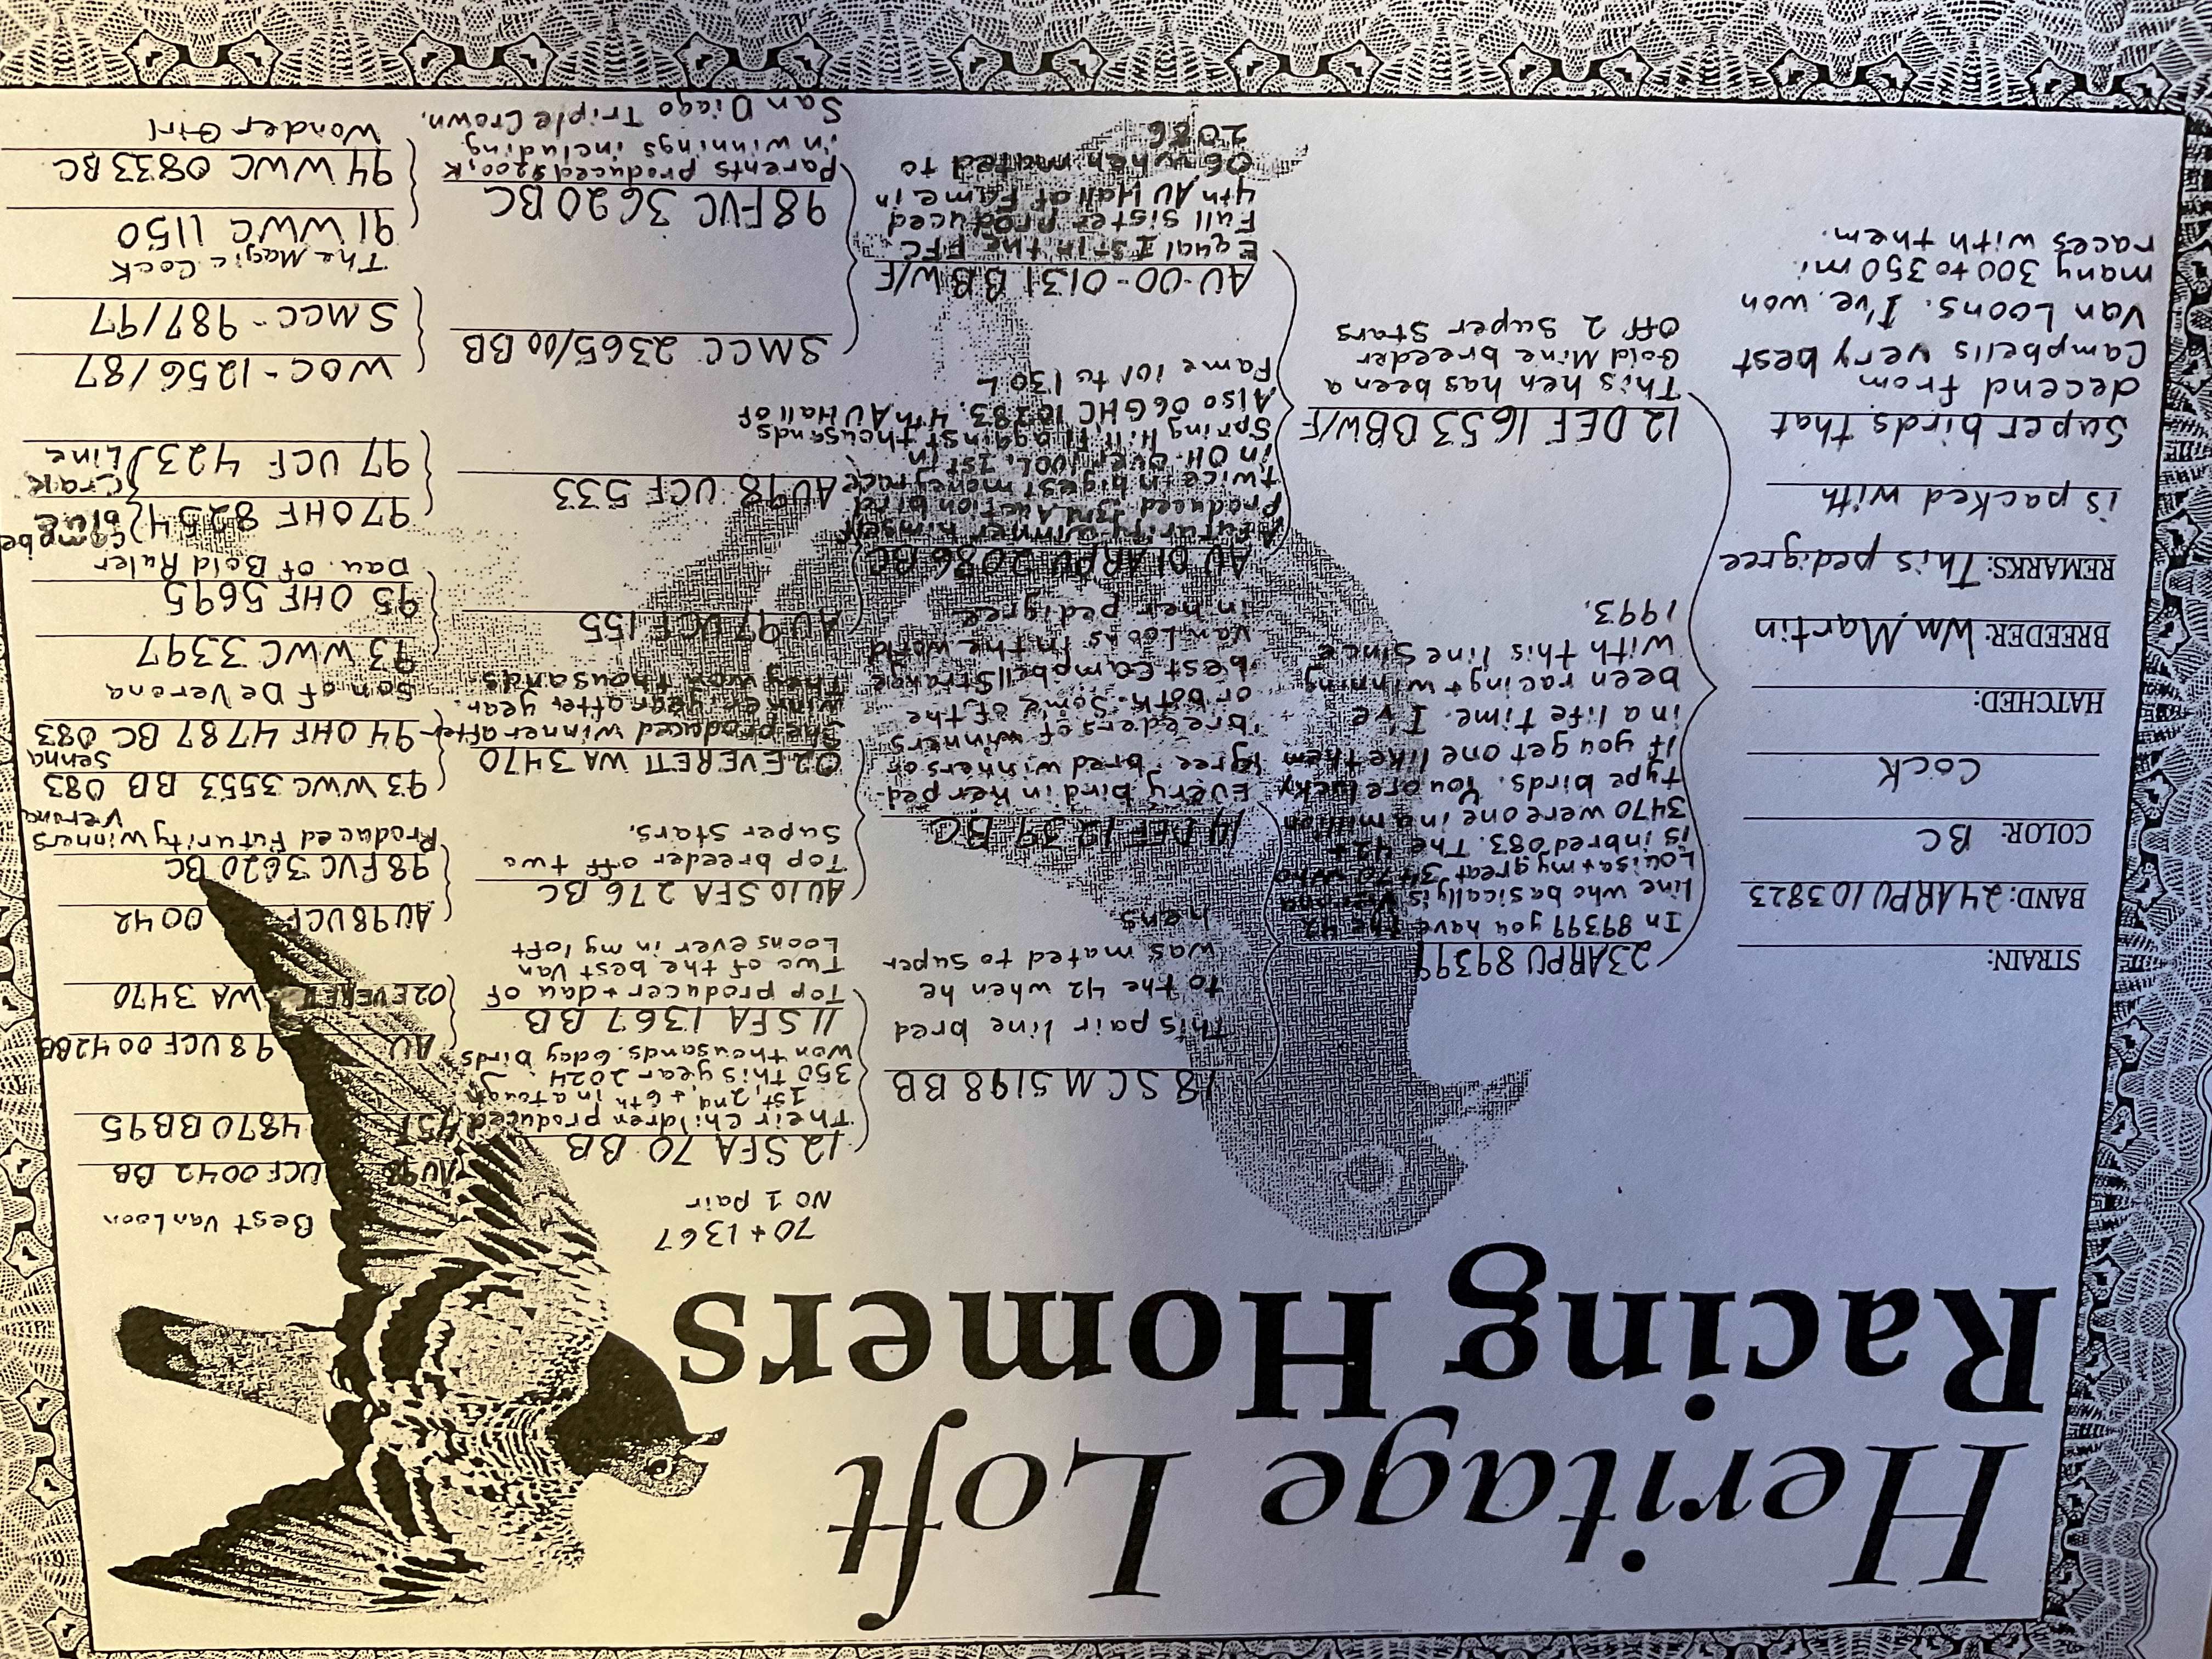 Heritage Loft
Racing Homers
STRAIN:
BAND: 24ARPU103823
COLOR: BC
Cock
HATCHED:
BREEDER: Wm. Martin
REMARKS: This pedigree
is packed with
Super birds that
decend from
Campbells very best
Van Loons. I've won
many 300 to 350 mi
races with them.
23ARPU 89399
In 89399 you have the 42
line who basically is Verona
Louisa + my great 3470 who
is inbred 083. The 42 +
3470 were one in a million
type birds. You are lucky
if you get one like them
in a life time. I've
been racing + winning
with this line since
1993.
12 DEF 1653 BBW/F
This hen has been a
Gold Mine breeder
off 2 Super Stars
18 SCM 5198 BB
This pair line bred
to the 42 when he
was mated to super
hens
14 DEF 1239 BC
Every bird in her ped-
igree bred winners or
breeders of winners
or both. Some of the
best Campbell Strange
Van Loons in the world
in her pedigree
AU 01ARPU 2086 BC
A Futurity winner himself
produced 3rd Auction bird
twice in biggest money race
in OH. over 100L, 1st in
Spring Hill against thousands
Also 06 GHC 10283. 4th AU Hall of
Fame 101 to 130 L
AU-00-0131 BBW/F
Equal 1st in the PFC
Full Sister produced
4th AU Hall of Fame in
06 when mated to
2086
70 + 1367
No 1 pair
12 SFA 70 BB
Their children produced
1st, 2nd, + 6th in a tough
350 this year 2024.
won thousands. 6 day birds
11 SFA 1367 BB
Top producer + dau of
Two of the best Van
Loons ever in my loft
AU10 SFA 276 BC
Top breeder off two
Super Stars.
02 EVERETT WA 3470
She produced winner after
winner year after year.
They won thousands.
AU 97 UCF 155
AU98 UCF 533
SMCC 2365/00 BB
98 FVC 3620 BC
Parents produced $200,K
in winnings including
San Diego Triple Crown.
Best Van Loon
AU98 UCF 0042 BB
4870 BB 95
AU 98 UCF 0042 BB
02 EVERETT WA 3470
AU98 UCF 0042
98 FVC 3620 BC
Produced Futurity winners
Verona
93 WWC 3553 BB 083
Senna
94 OHF 4787 BC 083
Son of De Verona
93 WWC 3397
95 OHF 5695
Dau. of Bold Ruler
97 OHF 8254
97 UCF 423
blue
Crak
Line
WOC-1256/87
SMCC-987/97
The Magic Cock
91 WWC 1150
94 WWC 0833 BC
Wonder Girl